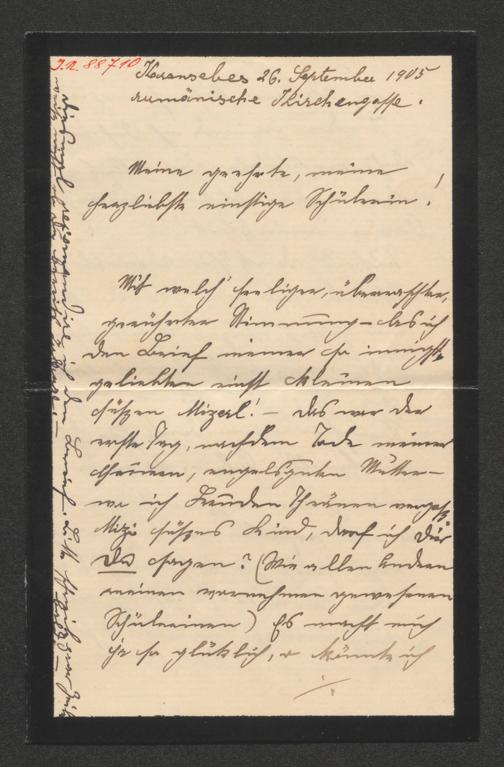 J.N. 88710
Karansebes 26. September 1905
rumänische Kirchengasse.
Meine geehrte, meine
herzliebste einstige Schülerin!
Mit welch' seeliger, überraschter,
gerührter Stimmung – las ich
den Brief meiner so innigst
geliebten einst kleinen
süßen Mizerl! – das war der
erste Tag, nachdem Tode meiner
theueren, engelsguten Mutter –
wo ich Freuden Thränen vergoß,
Mizi süßes Kind, darf ich Dir
Du sagen? (Wie allen andern
meinen vornehmen gewesenen
Schülerinen) Es macht mich
ja so glücklich, o könnte ich
./.